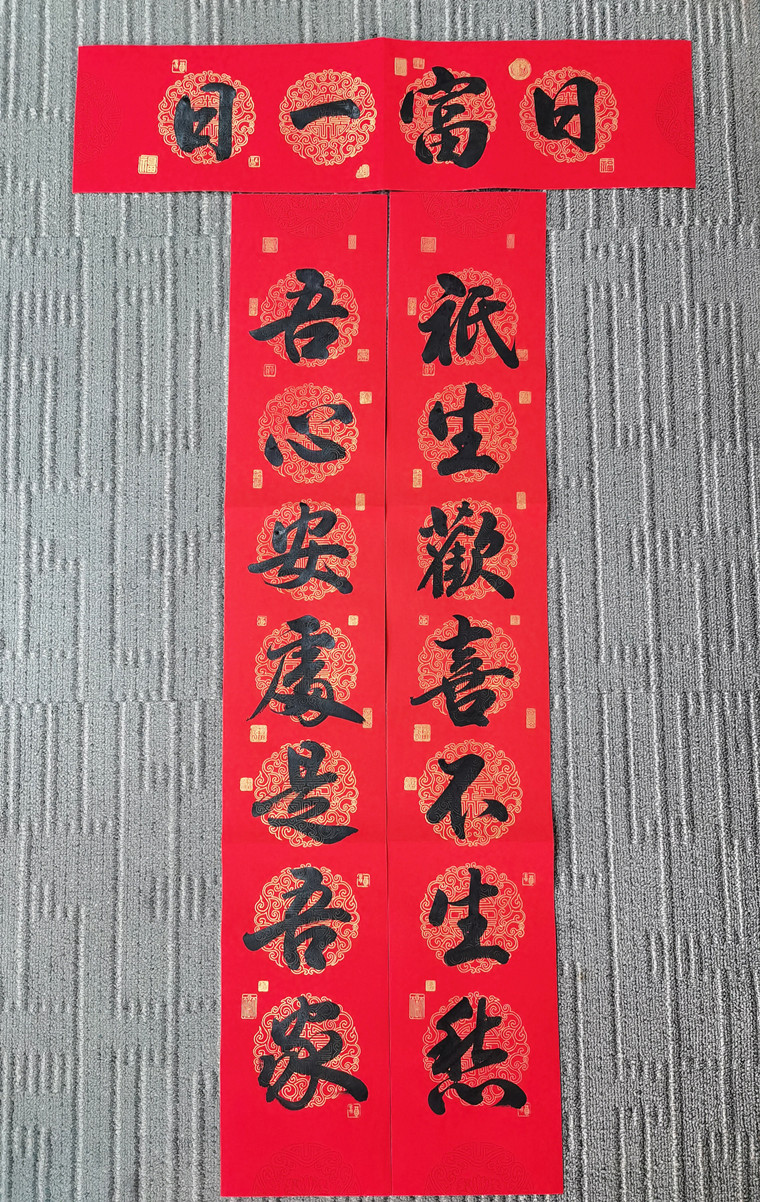 日富一日
祇生歡喜不生愁
吾心安處是吾家